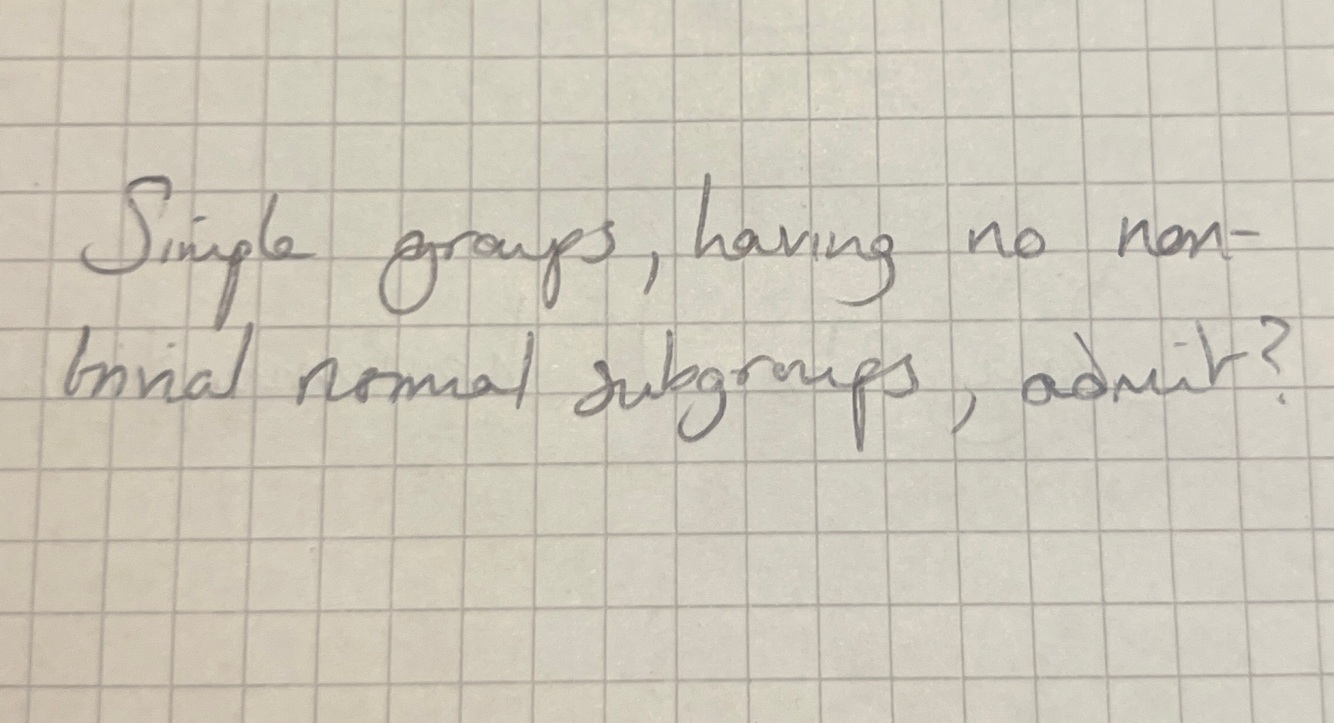 Simple groups, having no non-
trivial normal subgroups, admit?